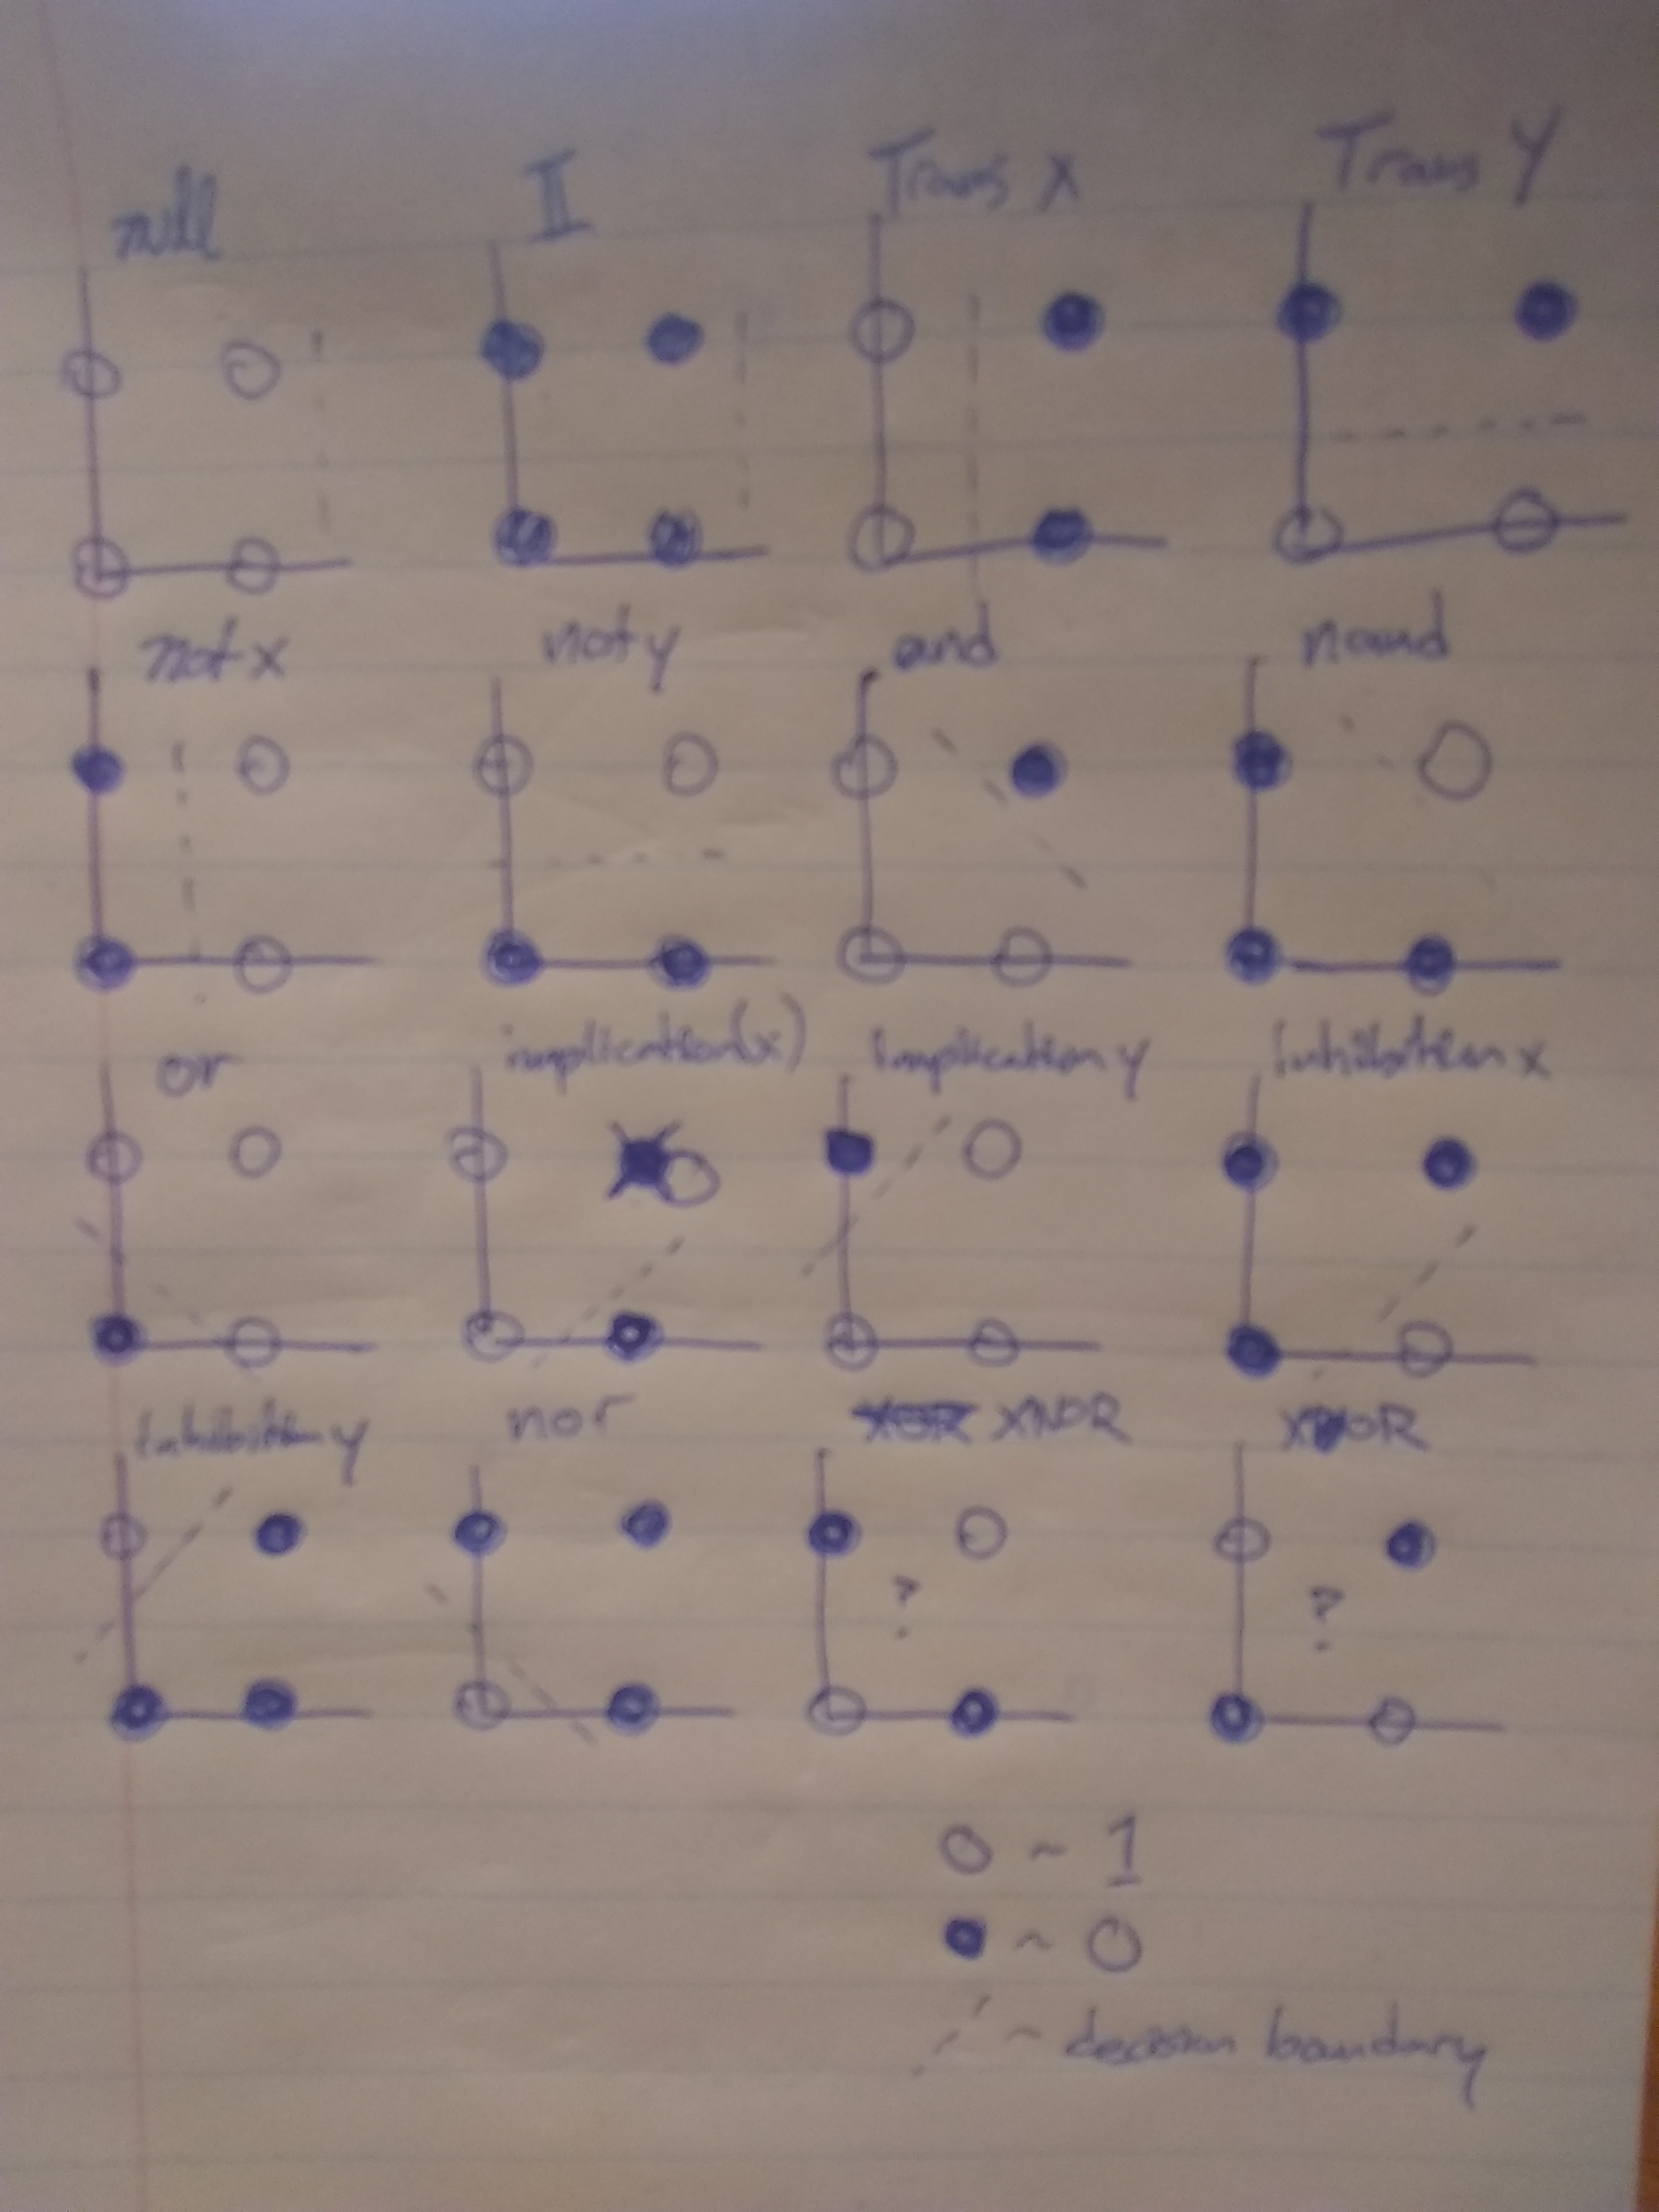 null II Trans X Trans Y
not x not y and nand
or implication(x) Implication y Inhibition x
Inhibition y nor XNOR XOR
? ?
O ~ 1
● ~ 0
~ decision boundary